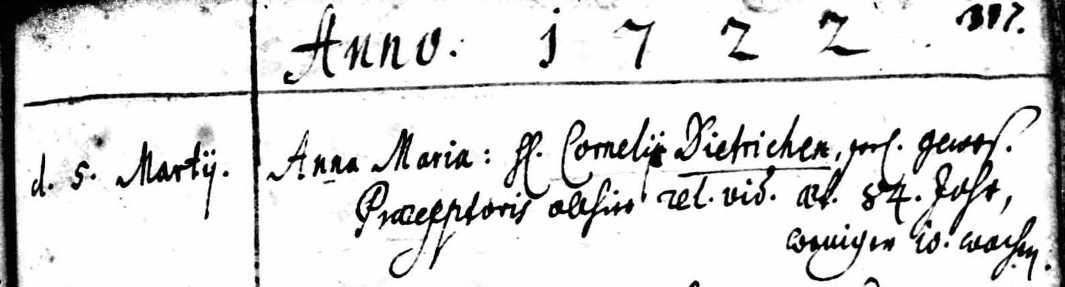 Anno. 1722
d. 5. Martÿ. Anna Maria: H. Cornelÿ Dietrichen, gewes.
Præceptoris allhier rel. vid. æt. 84. Jahr,
weniger 10. wochen.